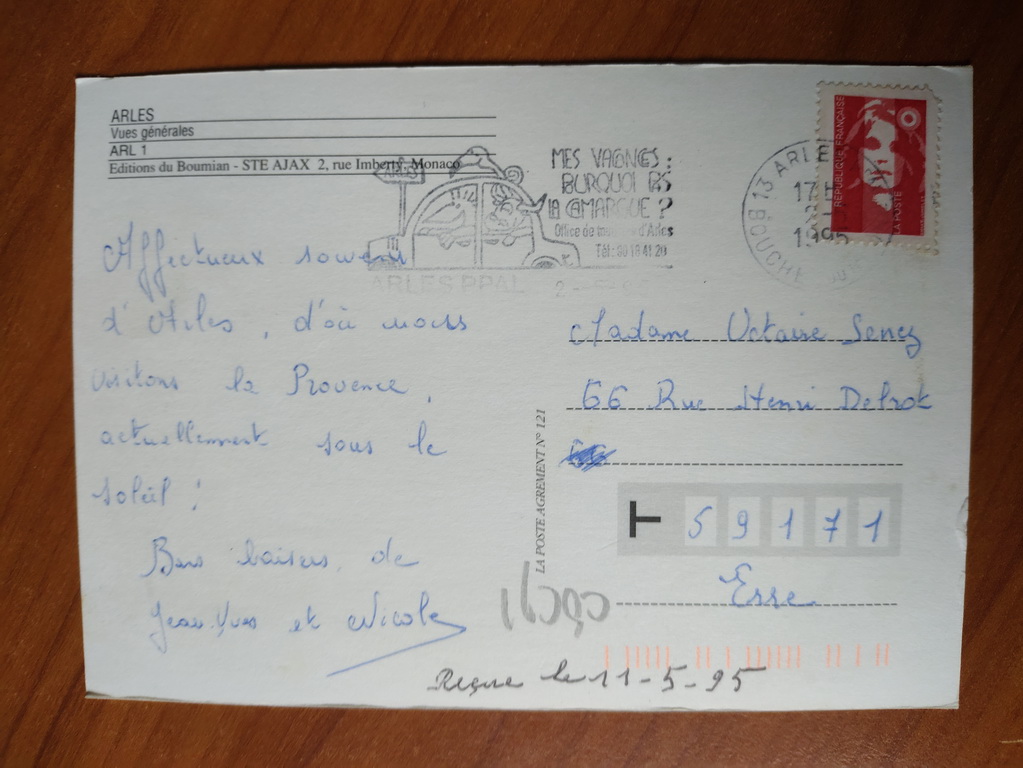 ARLES
Vues générales
ARL 1
Editions du Boumian - STE AJAX 2, rue Imberty, Monaco
MES VACANCES :
POURQUOI PAS
LA CAMARGUE ?
Office de tourisme d'Arles
Tél : 90 18 41 20
ARLES PPAL
13 ARLES
17H
1995
BOUCHES DU
RÉPUBLIQUE FRANÇAISE
LA POSTE
Affectueux souvenir
d'Arles, d'où nous
visitons la Provence,
actuellement sous le
soleil !
Bons baisers de
Jean-Yves et Nicole
LA POSTE AGREMENT N° 121
Madame Senez
66 Rue Henri Delrot
T 59171
Erre
Reçue le 11-5-95